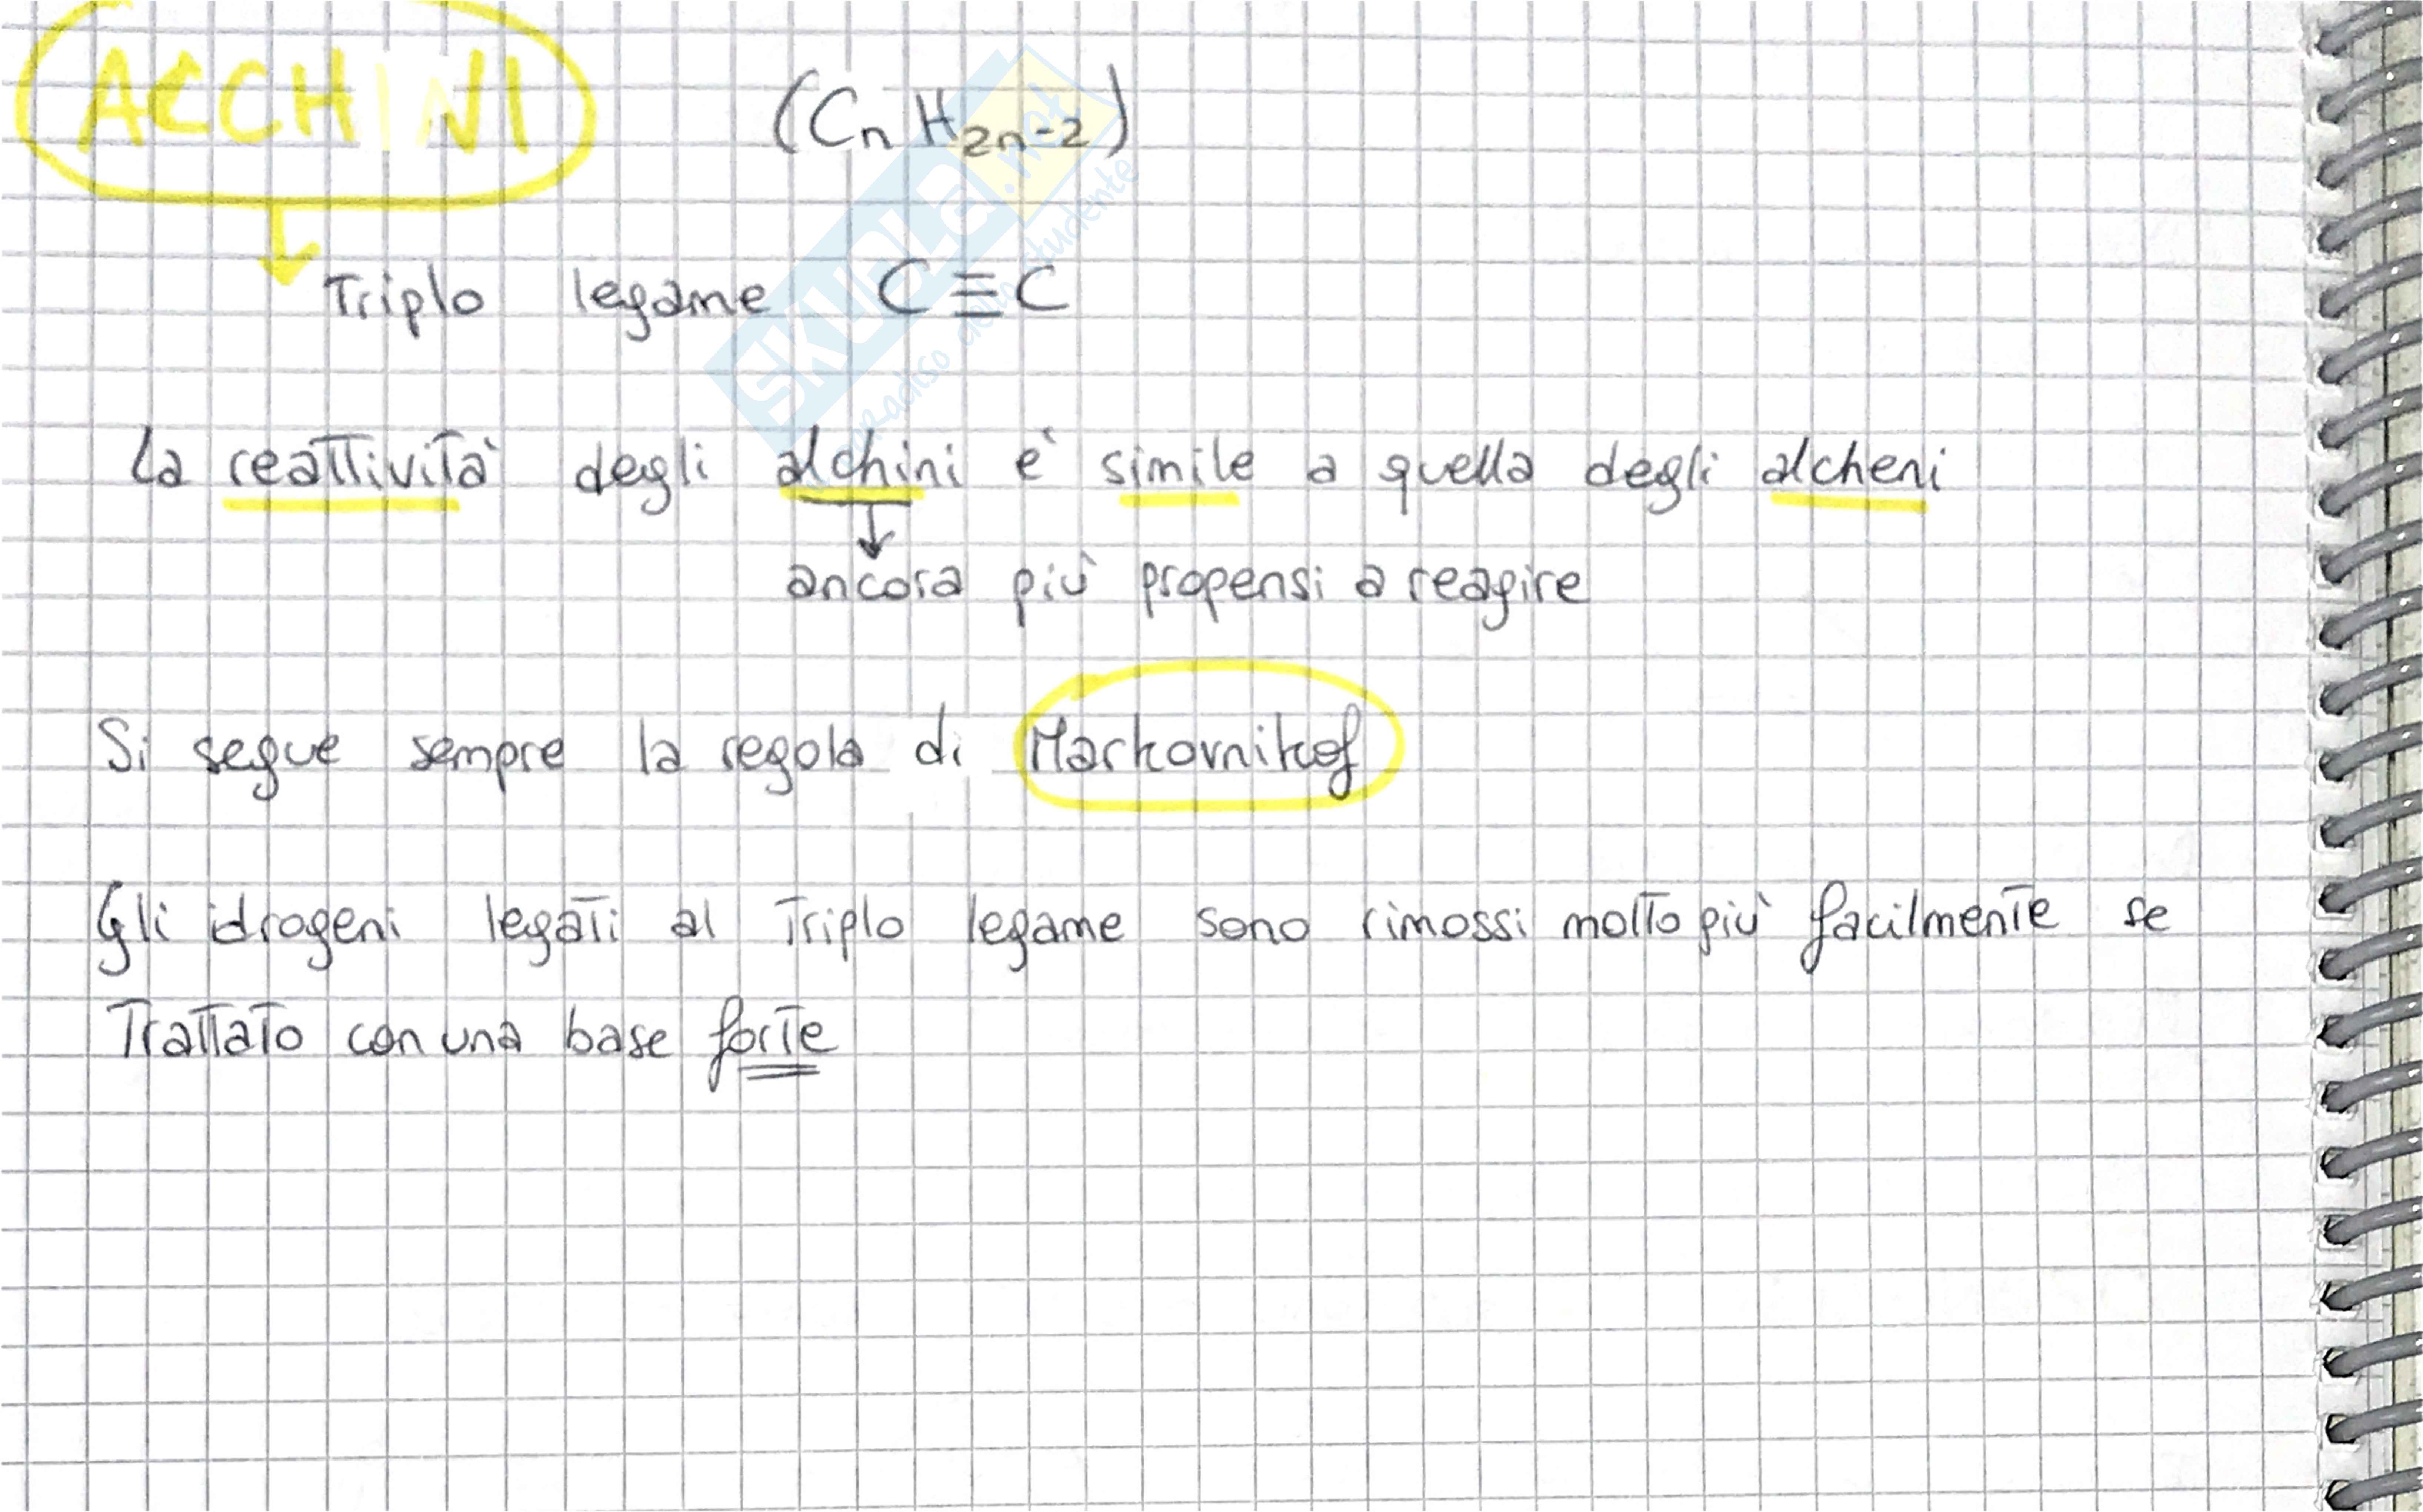 ALCHINI (CnH2n-2)
Triplo legame C≡C
La reattività degli alchini è simile a quella degli alcheni
ancora più propensi a reagire
Si segue sempre la regola di Markovnikof
Gli idrogeni legati al Triplo legame sono rimossi molto più facilmente se
Trattato con una base forte
SKUOLA.net
paradiso dello studente